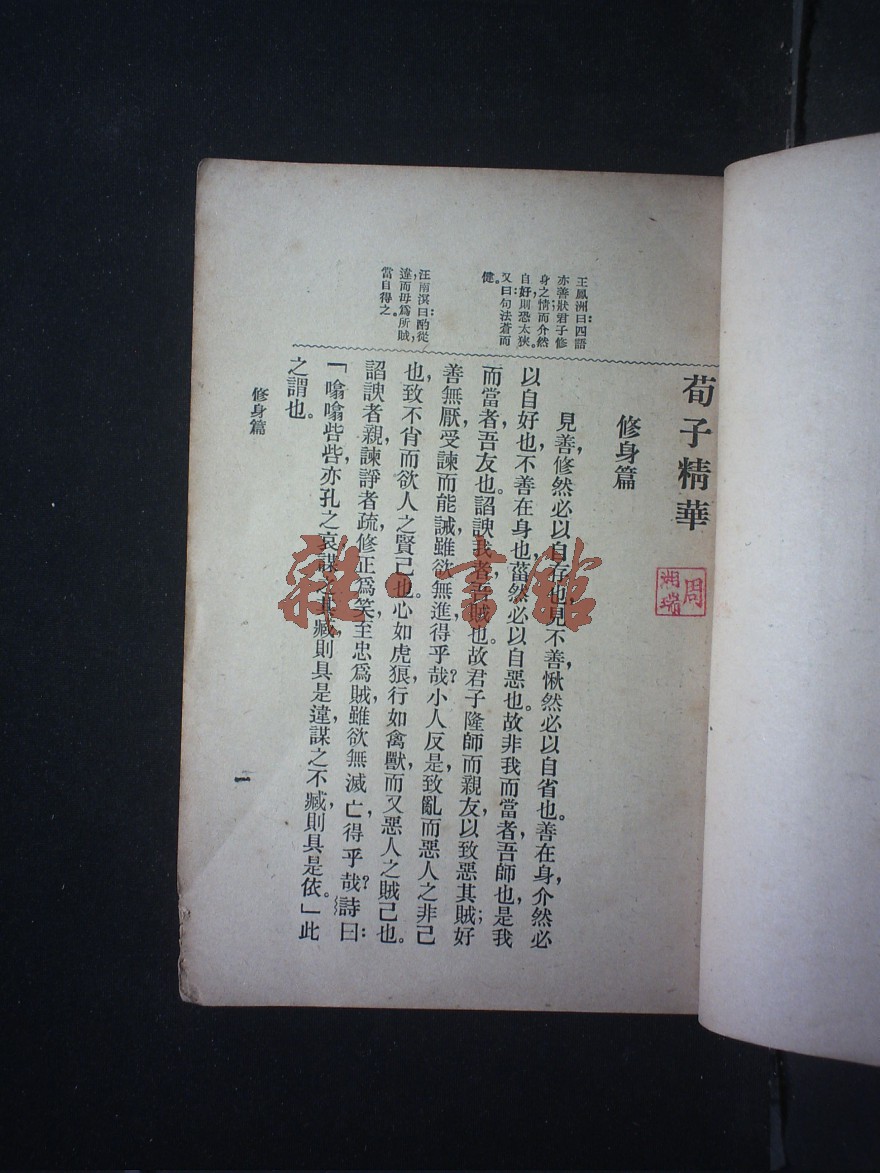 荀子精華
周湘瑞
修身篇
見善，修然必以自存也，見不善，愀然必以自省也。善在身，介然必
以自好也，不善在身也，菑然必以自惡也。故非我而當者，吾師也，是我
而當者，吾友也。諂諛我者，吾賊也。故君子隆師而親友，以致惡其賊；好
善無厭，受諫而能誡，雖欲無進，得乎哉？小人反是，致亂而惡人之非己
也，致不肖而欲人之賢己也。心如虎狼，行如禽獸，而又惡人之賊己也。
諂諛者親，諫諍者疏，修正爲笑，至忠爲賊，雖欲無滅亡，得乎哉？詩曰：
「噏噏呰呰，亦孔之哀，謀之其臧，則具是違，謀之不臧，則具是依。」此
之謂也。
王鳳洲曰：四語
亦善狀君子修
身之情，而介然
自好，則恐太狹。
又曰：句法蒼而
健。
汪南溟曰：酌從
違而毋爲所賊，
當自得之。
修身篇
一
雜·書館